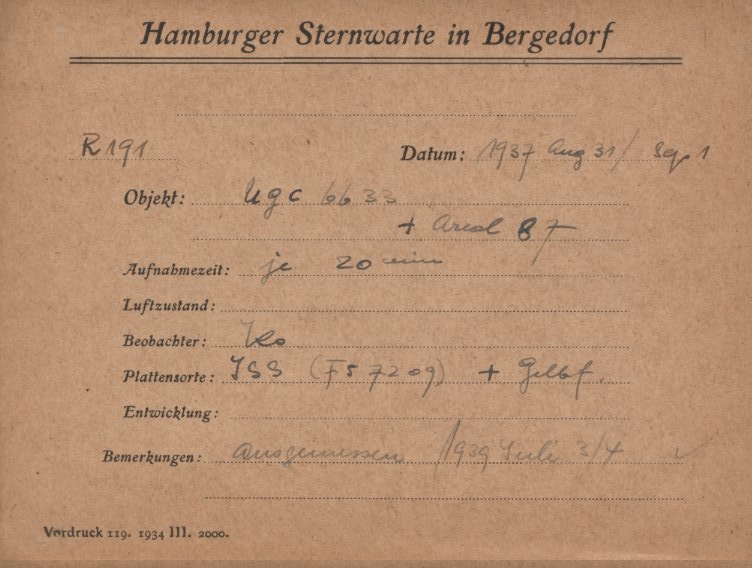 Hamburger Sternwarte in Bergedorf
R 191 Datum: 1937 Aug 31/ Sep 1
Objekt: Ngc 6633
+ Areal 87
Aufnahmezeit: je 20 min
Luftzustand:
Beobachter:
Plattensorte: ISS (F5 7209) + Gelbf.
Entwicklung:
Bemerkungen: ausgemessen 1939 Juli 3/4 ✓
Vordruck 119. 1934 III. 2000.